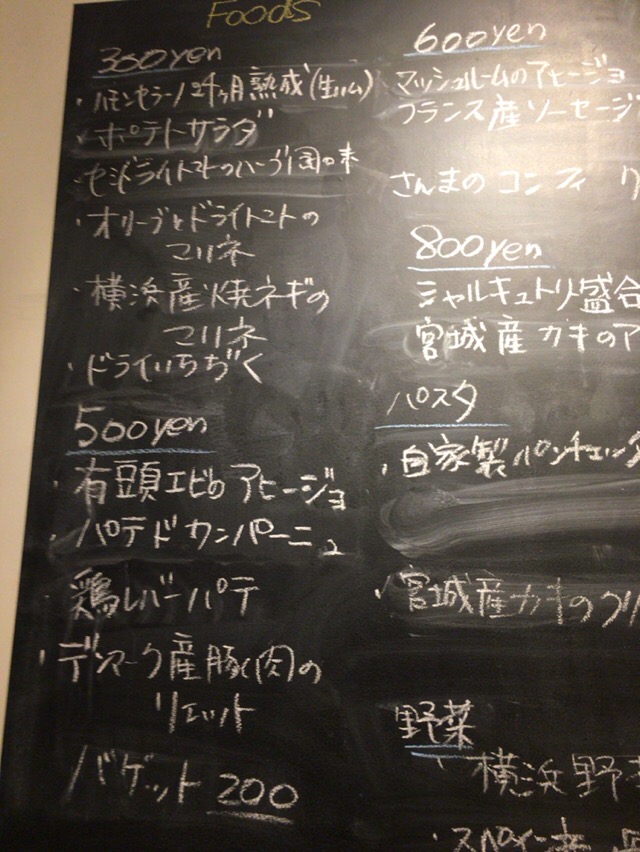 Foods
300yen
・ハモンセラーノ24ヶ月熟成(生ハム)
・ポテトサラダ
・セミドライトマトのハーブ風味
・オリーブとドライトマトの
マリネ
・横浜産焼ネギの
マリネ
・ドライいちぢく
500yen
・有頭エビのアヒージョ
・パテドカンパーニュ
鶏レバーパテ
・デンマーク産豚肉の
リエット
バゲット 200
600yen
マッシュルームのアヒージョ
フランス産ソーセージ
さんまのコンフィ
800yen
シャルキュトリ盛合
宮城産カキのア
パスタ
・自家製パンチェッタ
・宮城産カキのクリ
野菜
・横浜野菜
・スペイン産